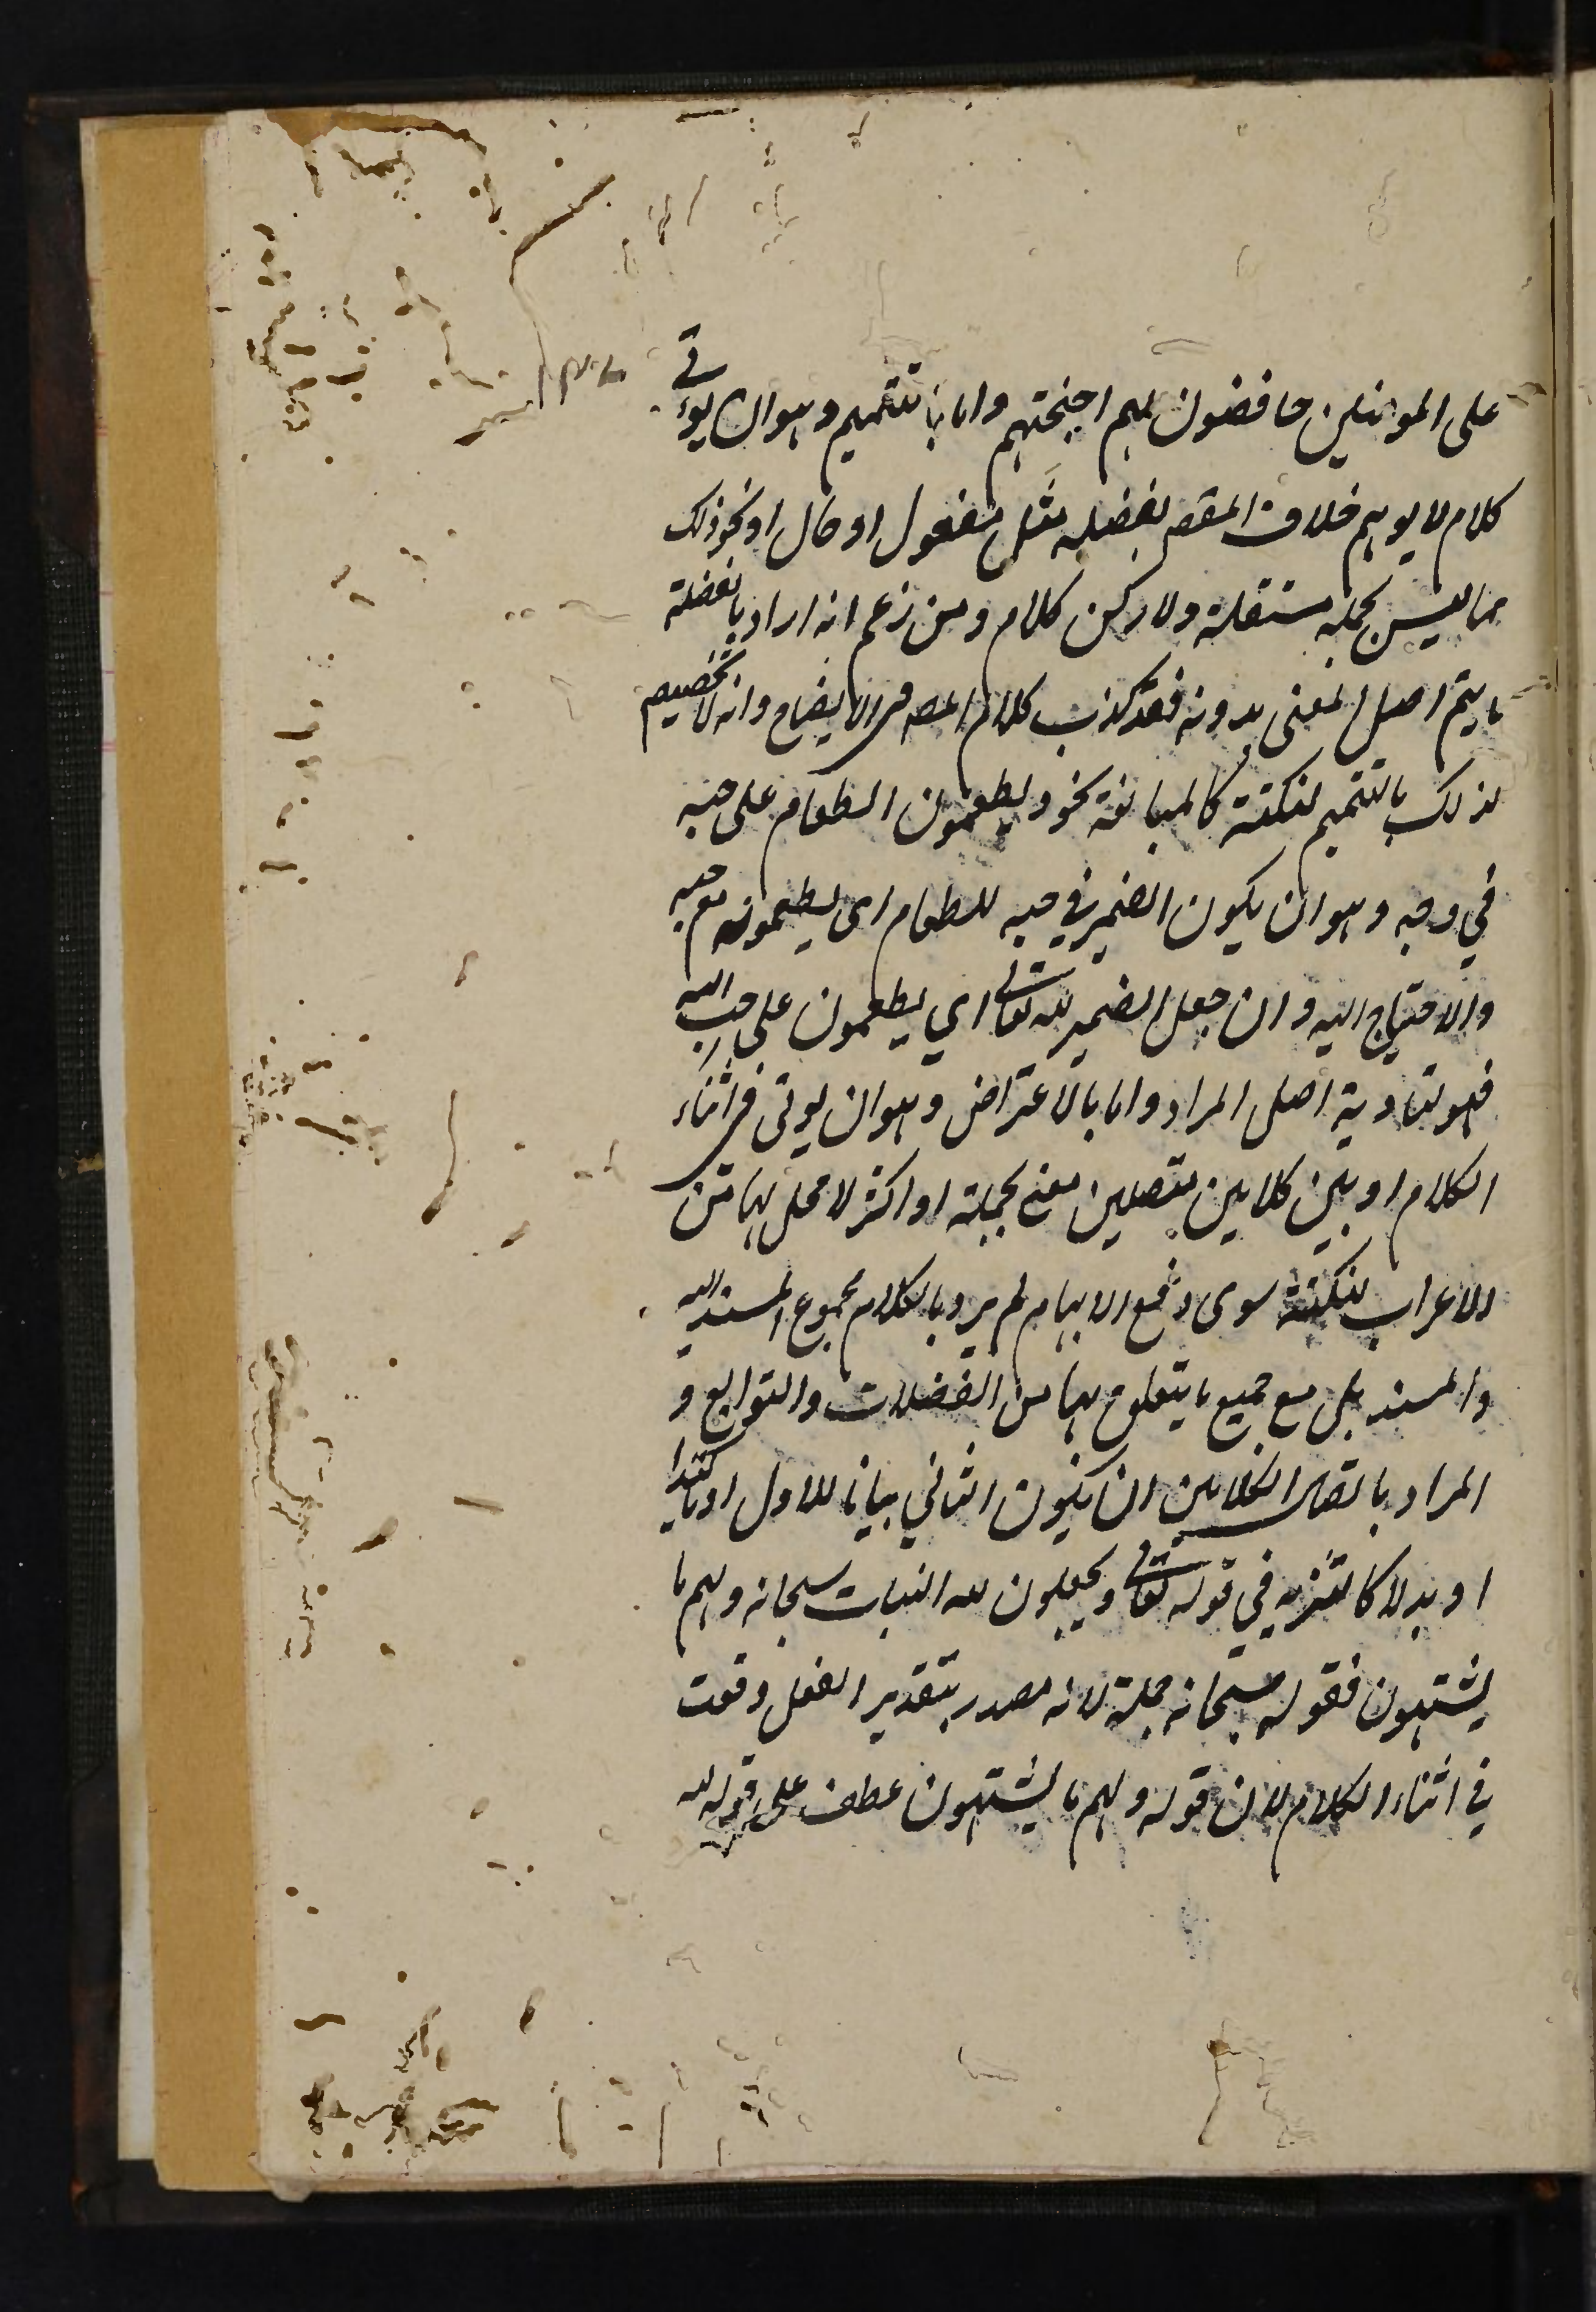 على المومنين حافضون لهم اجنحتهم واما بالتتميم وهو ان يؤتى في
كلام لا يوهم خلاف المقصـ بفضلة مثل مفعول او حال او نحو ذلك
مما ليس بجملة مستقلة ولا ركن كلام ومن زعم انه اراد بالفضلة
ما يتم اصل المعنى بدونه فقد كذب كلام المصـ فى الايضاح وانه لا تخصيص
لذلك بالتتميم لنكتة كالمبالغة نحو ويطعمون الطعام على حبه
في وجه وهو ان يكون الضمير في حبه للطعام اى يطعمونه مع حبه
والاحتياج اليه وان جعل الضمير لله تعالى اي يطعمون على حب الله
فهو لتادية اصل المراد واما بالاعتراض وهو ان يوتى فى اثناء
الكلام او بين كلامين متصلين معنى بجملة او اكثر لا محل لها من
الاعراب لنكتة سوى دفع الايهام لم يرد بالكلام مجموع المسند اليه
والمسند بل مع جميع ما يتعلق بهما من الفضلات والتوابع و
المراد باتصال الكلامين ان يكون الثاني بيانا للاول او تاكيدا
او بدلا كالتنزيه في قوله تعالى ويجعلون لله البنات سبحانه ولهم ما
يشتهون فقوله سبحانه جملة لانه مصدر بتقدير الفعل وقعت
في اثناء الكلام لان قوله ولهم ما يشتهون عطف على قوله لله